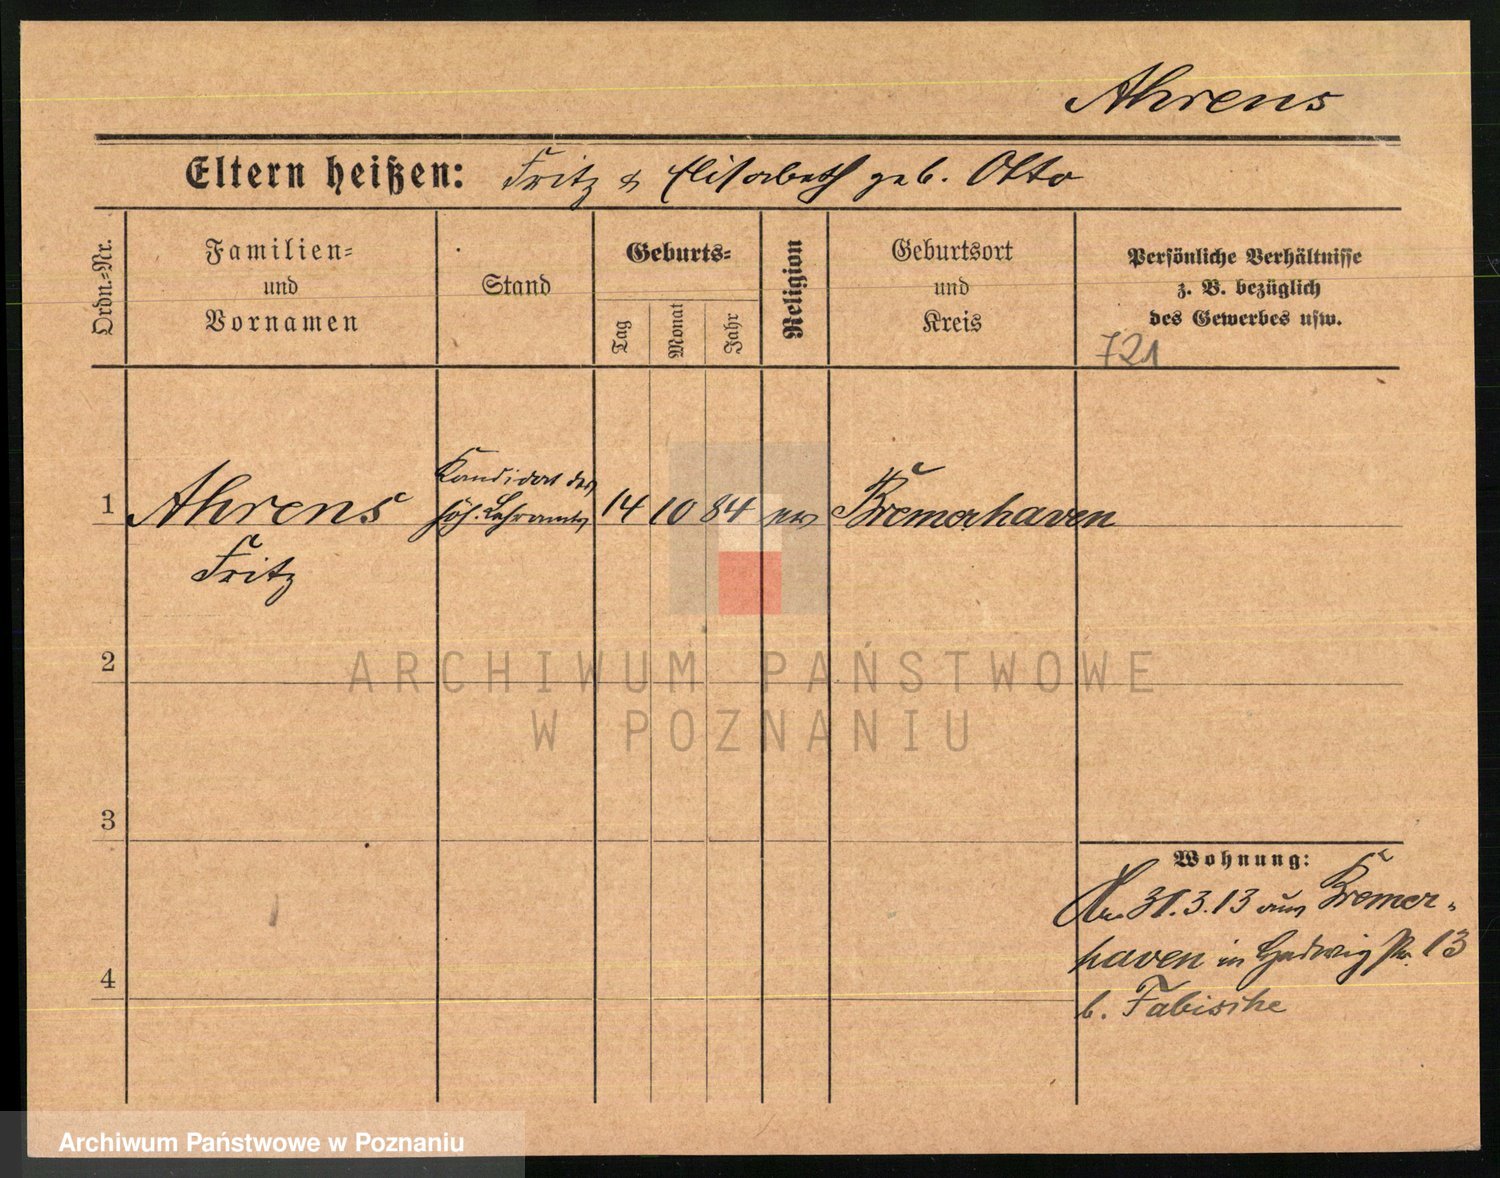 Ahrens
Eltern heißen: Fritz & Elisabeth geb. Otto
Ordn.=Nr.
Familien=
und
Vornamen
Stand
Geburts=
Tag
Monat
Jahr
Religion
Geburtsort
und
Kreis
Persönliche Verhältnisse
z. B. bezüglich
des Gewerbes usw.
721
1
Ahrens
Fritz
Kandidat des
höh. Lehramts
14 10 84 ev
Bremerhaven
2
3
4
Wohnung:
Am 31.3.13 aus Bremer-
haven in Hedwigstr. 13
b. Fabische
ARCHIWUM PAŃSTWOWE
W POZNANIU
Archiwum Państwowe w Poznaniu